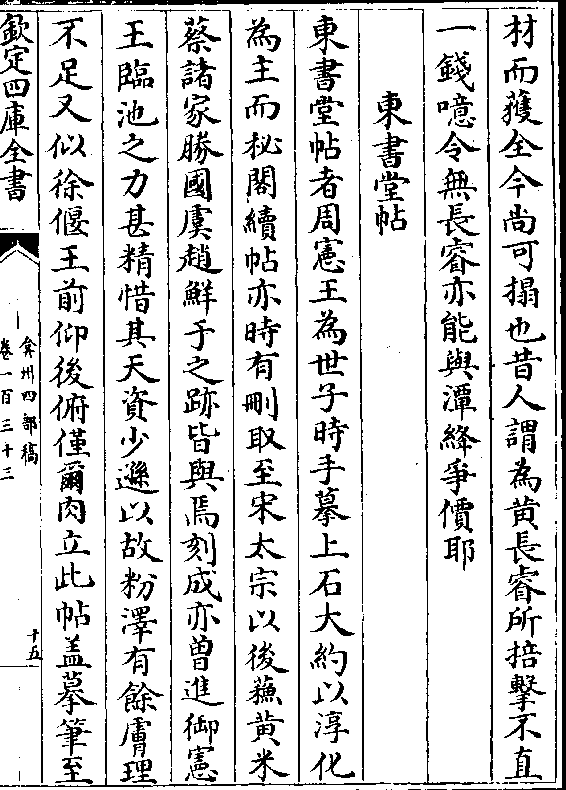 材而獲全今尚可搨也昔人謂為黄長睿所掊擊不直
一錢噫令無長睿亦能與潭絳爭價耶
東書堂帖
東書堂帖者周憲王為世子時手摹上石大約以淳化
為主而秘閣續帖亦時有刪取至宋太宗以後蘓黄米
蔡諸家勝國虞趙鮮于之跡皆與焉刻成亦曾進御憲
王臨池之力甚精惜其天資少遜以故粉澤有餘膚理
不足又似徐偃王前仰後俯僅爾肉立此帖盖摹筆至
欽定四庫全書
弇州四部稿
卷一百三十三
十五